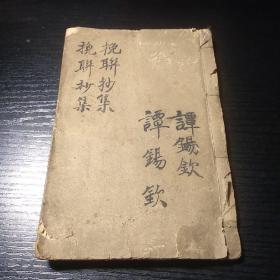 譚錫欽
譚錫欽
挽聯抄集
挽聯抄集